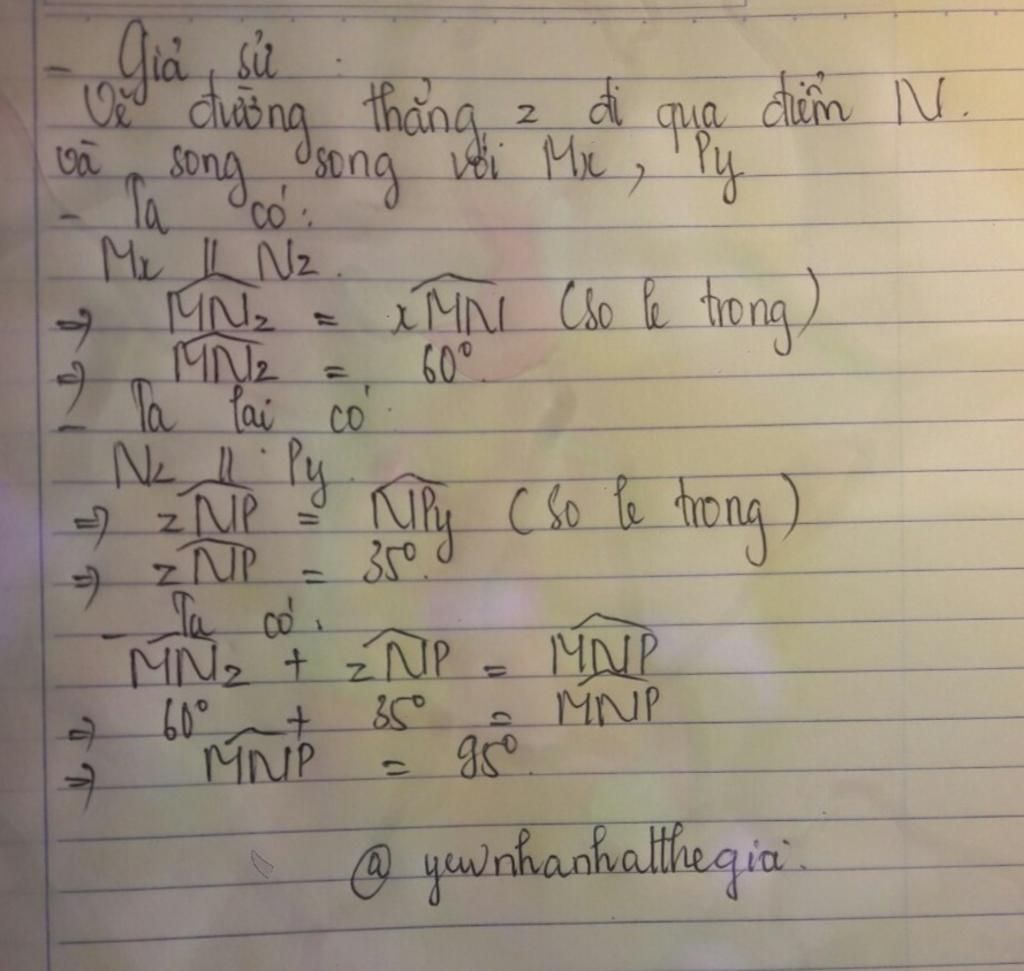 - Giả sử
Vẽ đường thẳng z đi qua điểm N.
và song song với Mx, Py
- Ta có:
Mx // Nz.
=> MNz = xMN (so le trong)
=> MNz = 60°.
- Ta lại có
Nz // Py.
=> zNP = NPy (so le trong)
=> zNP = 35°.
- Ta có.
MNz + zNP = MNP
=> 60° + 35° = MNP
=> MNP = 95°.
@ yewnhanhatthegioi